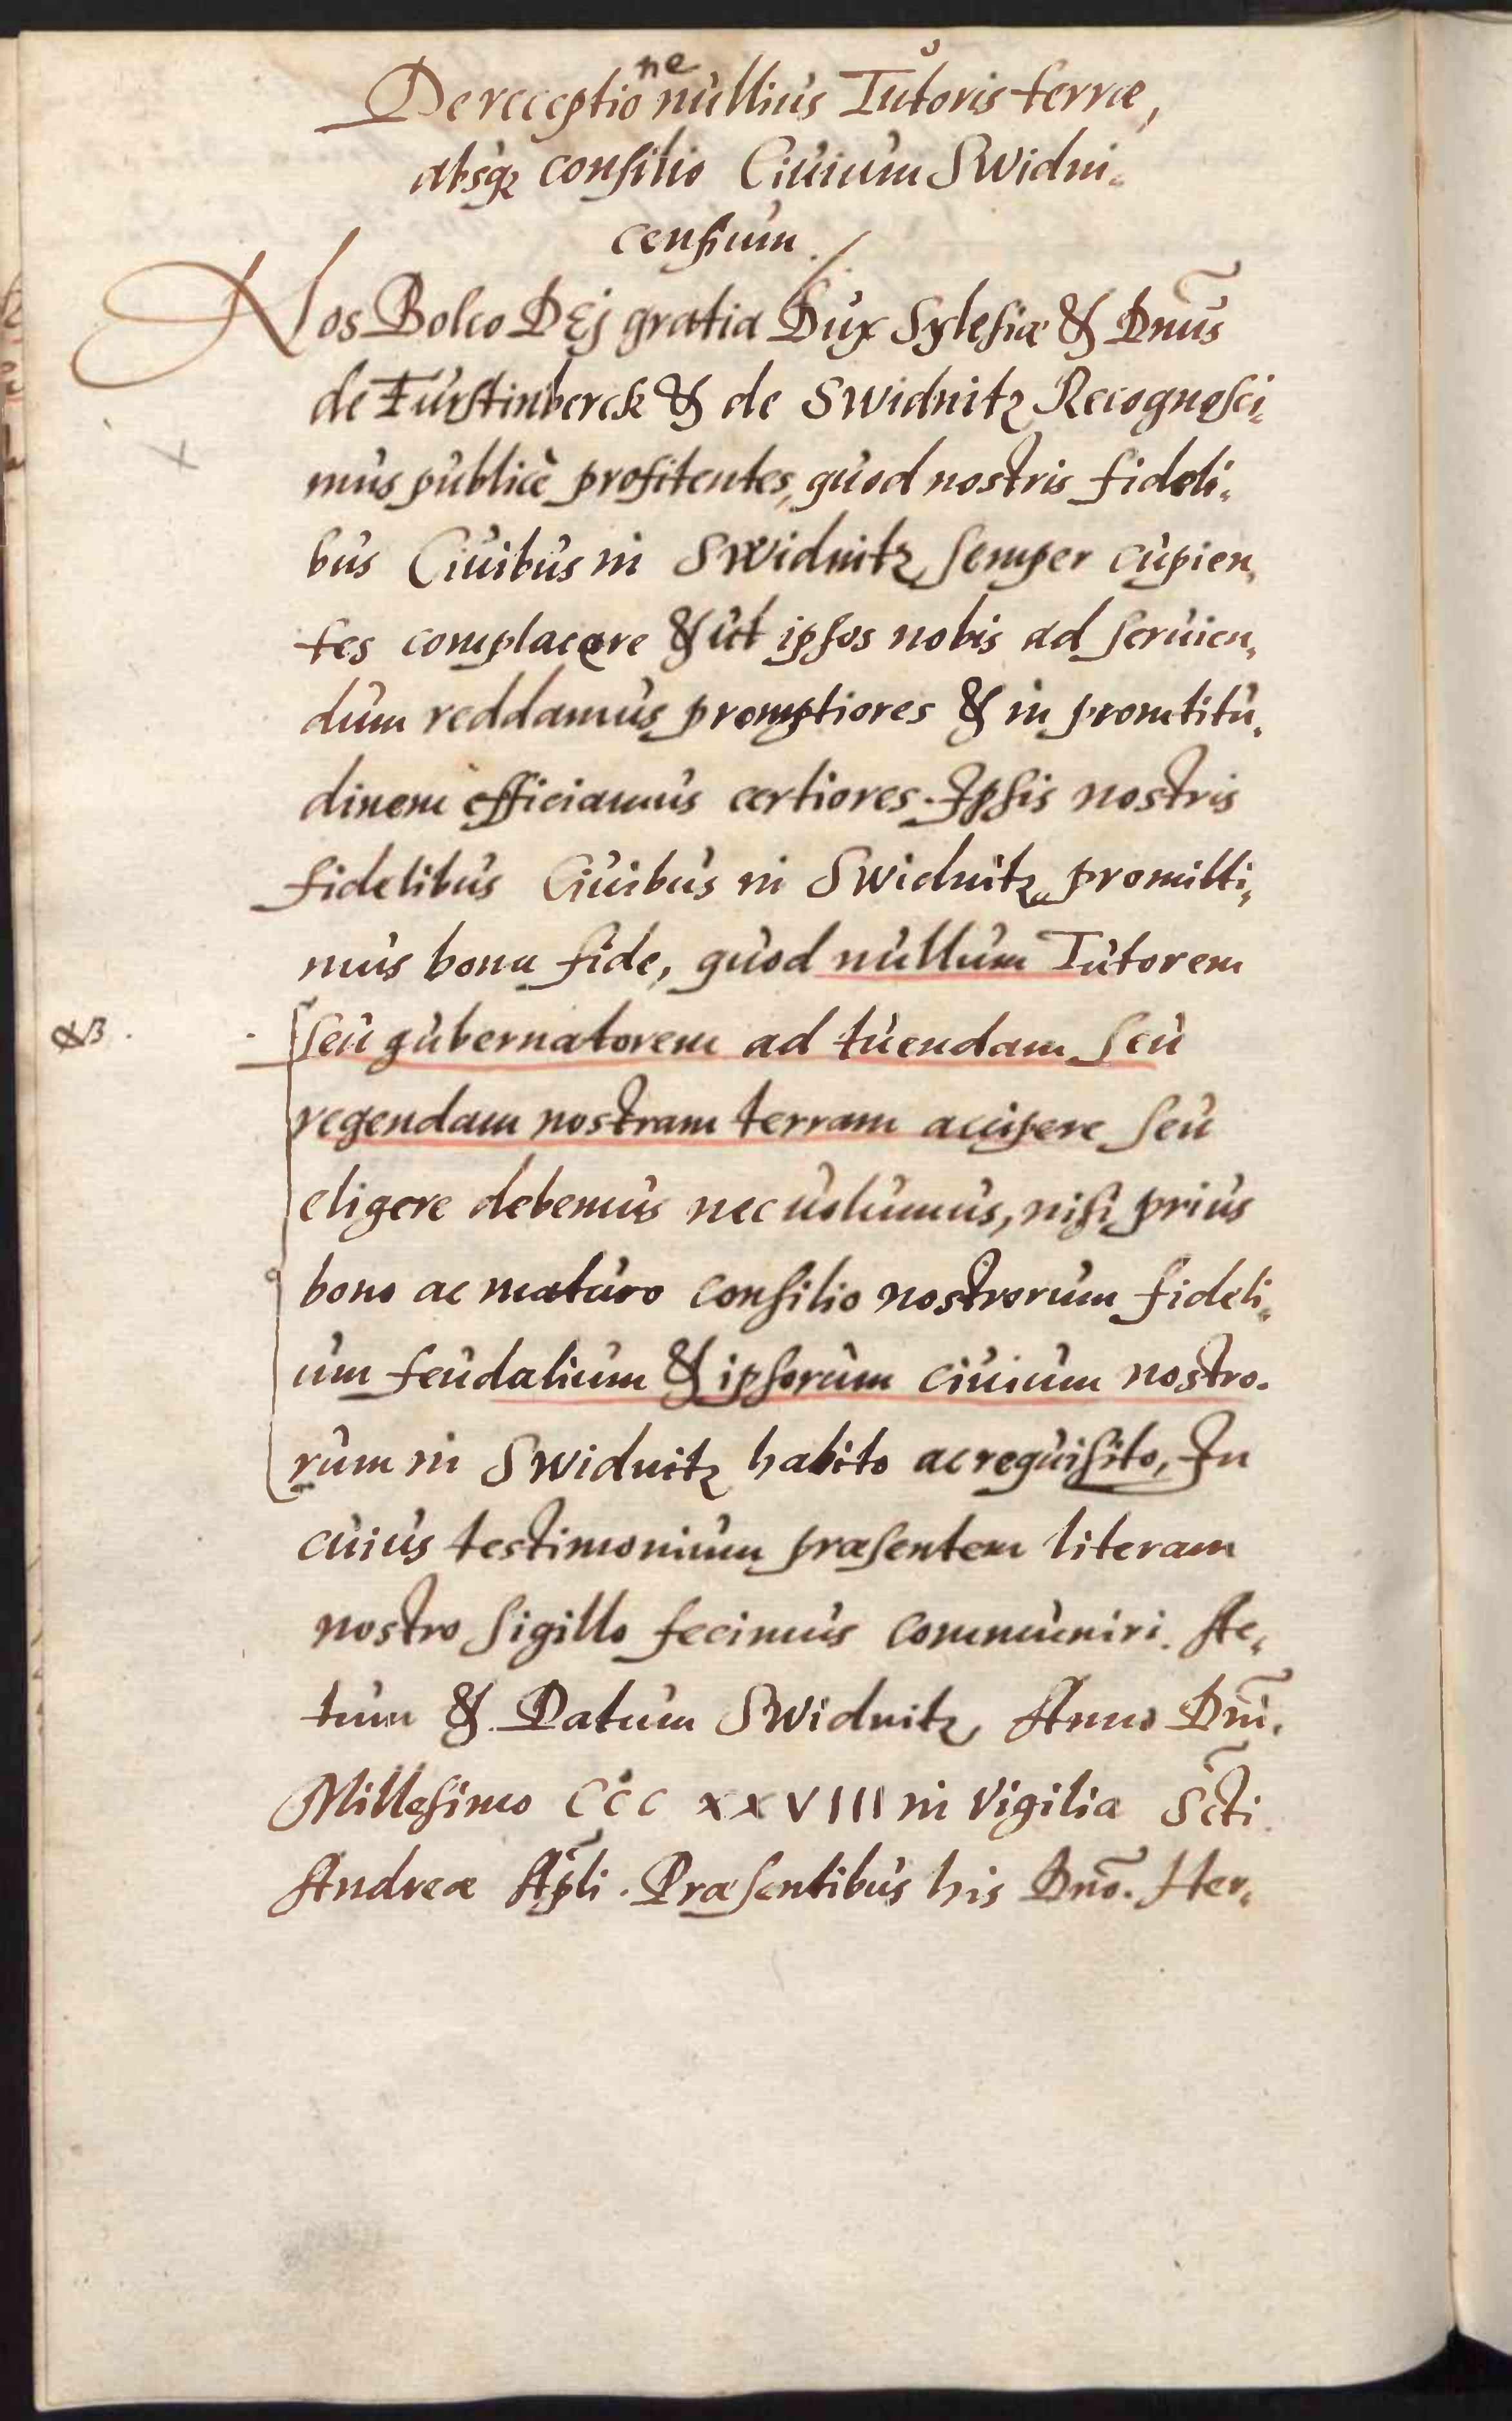 De receptione nullius Tutoris terræ,
absq₃ consilio Ciuium Swidni„
censium.
Nos Bolco DEj gratia Dux Sylesiæ & Dnũs
de Furstinberck & de Swidnitz Recognosci„
mus publicè profitentes, quod nostris fideli„
bus Ciuibus in Swidnitz semper cupien„
tes complacere & ut ipsos nobis ad seruien„
dum reddamus promptiores & in promtitu„
dinem efficiamus certiores. Ipsis nostris
fidelibus Ciuibus in Swidnitz promitti„
mus bona fide, quod nullum Tutorem
NB. seu gubernatorem ad tuendam seu
regendam nostram terram accipere seu
eligere debemus nec uolumus, nisi prius
bono ac maturo consilio nostrorum fideli„
um feudalium & ipsorum ciuium nostro„
rum in Swidnitz habito ac requisito, In
cuius testimonium præsentem literam
nostro sigillo fecimus communiri. Ac„
tum & Datum Swidnitz Anno Dnĩ.
Millesimo CCC XXVIII in Vigilia Sc̃ti
Andreæ Ap̃li. Præsentibus his Dnõ. Her„